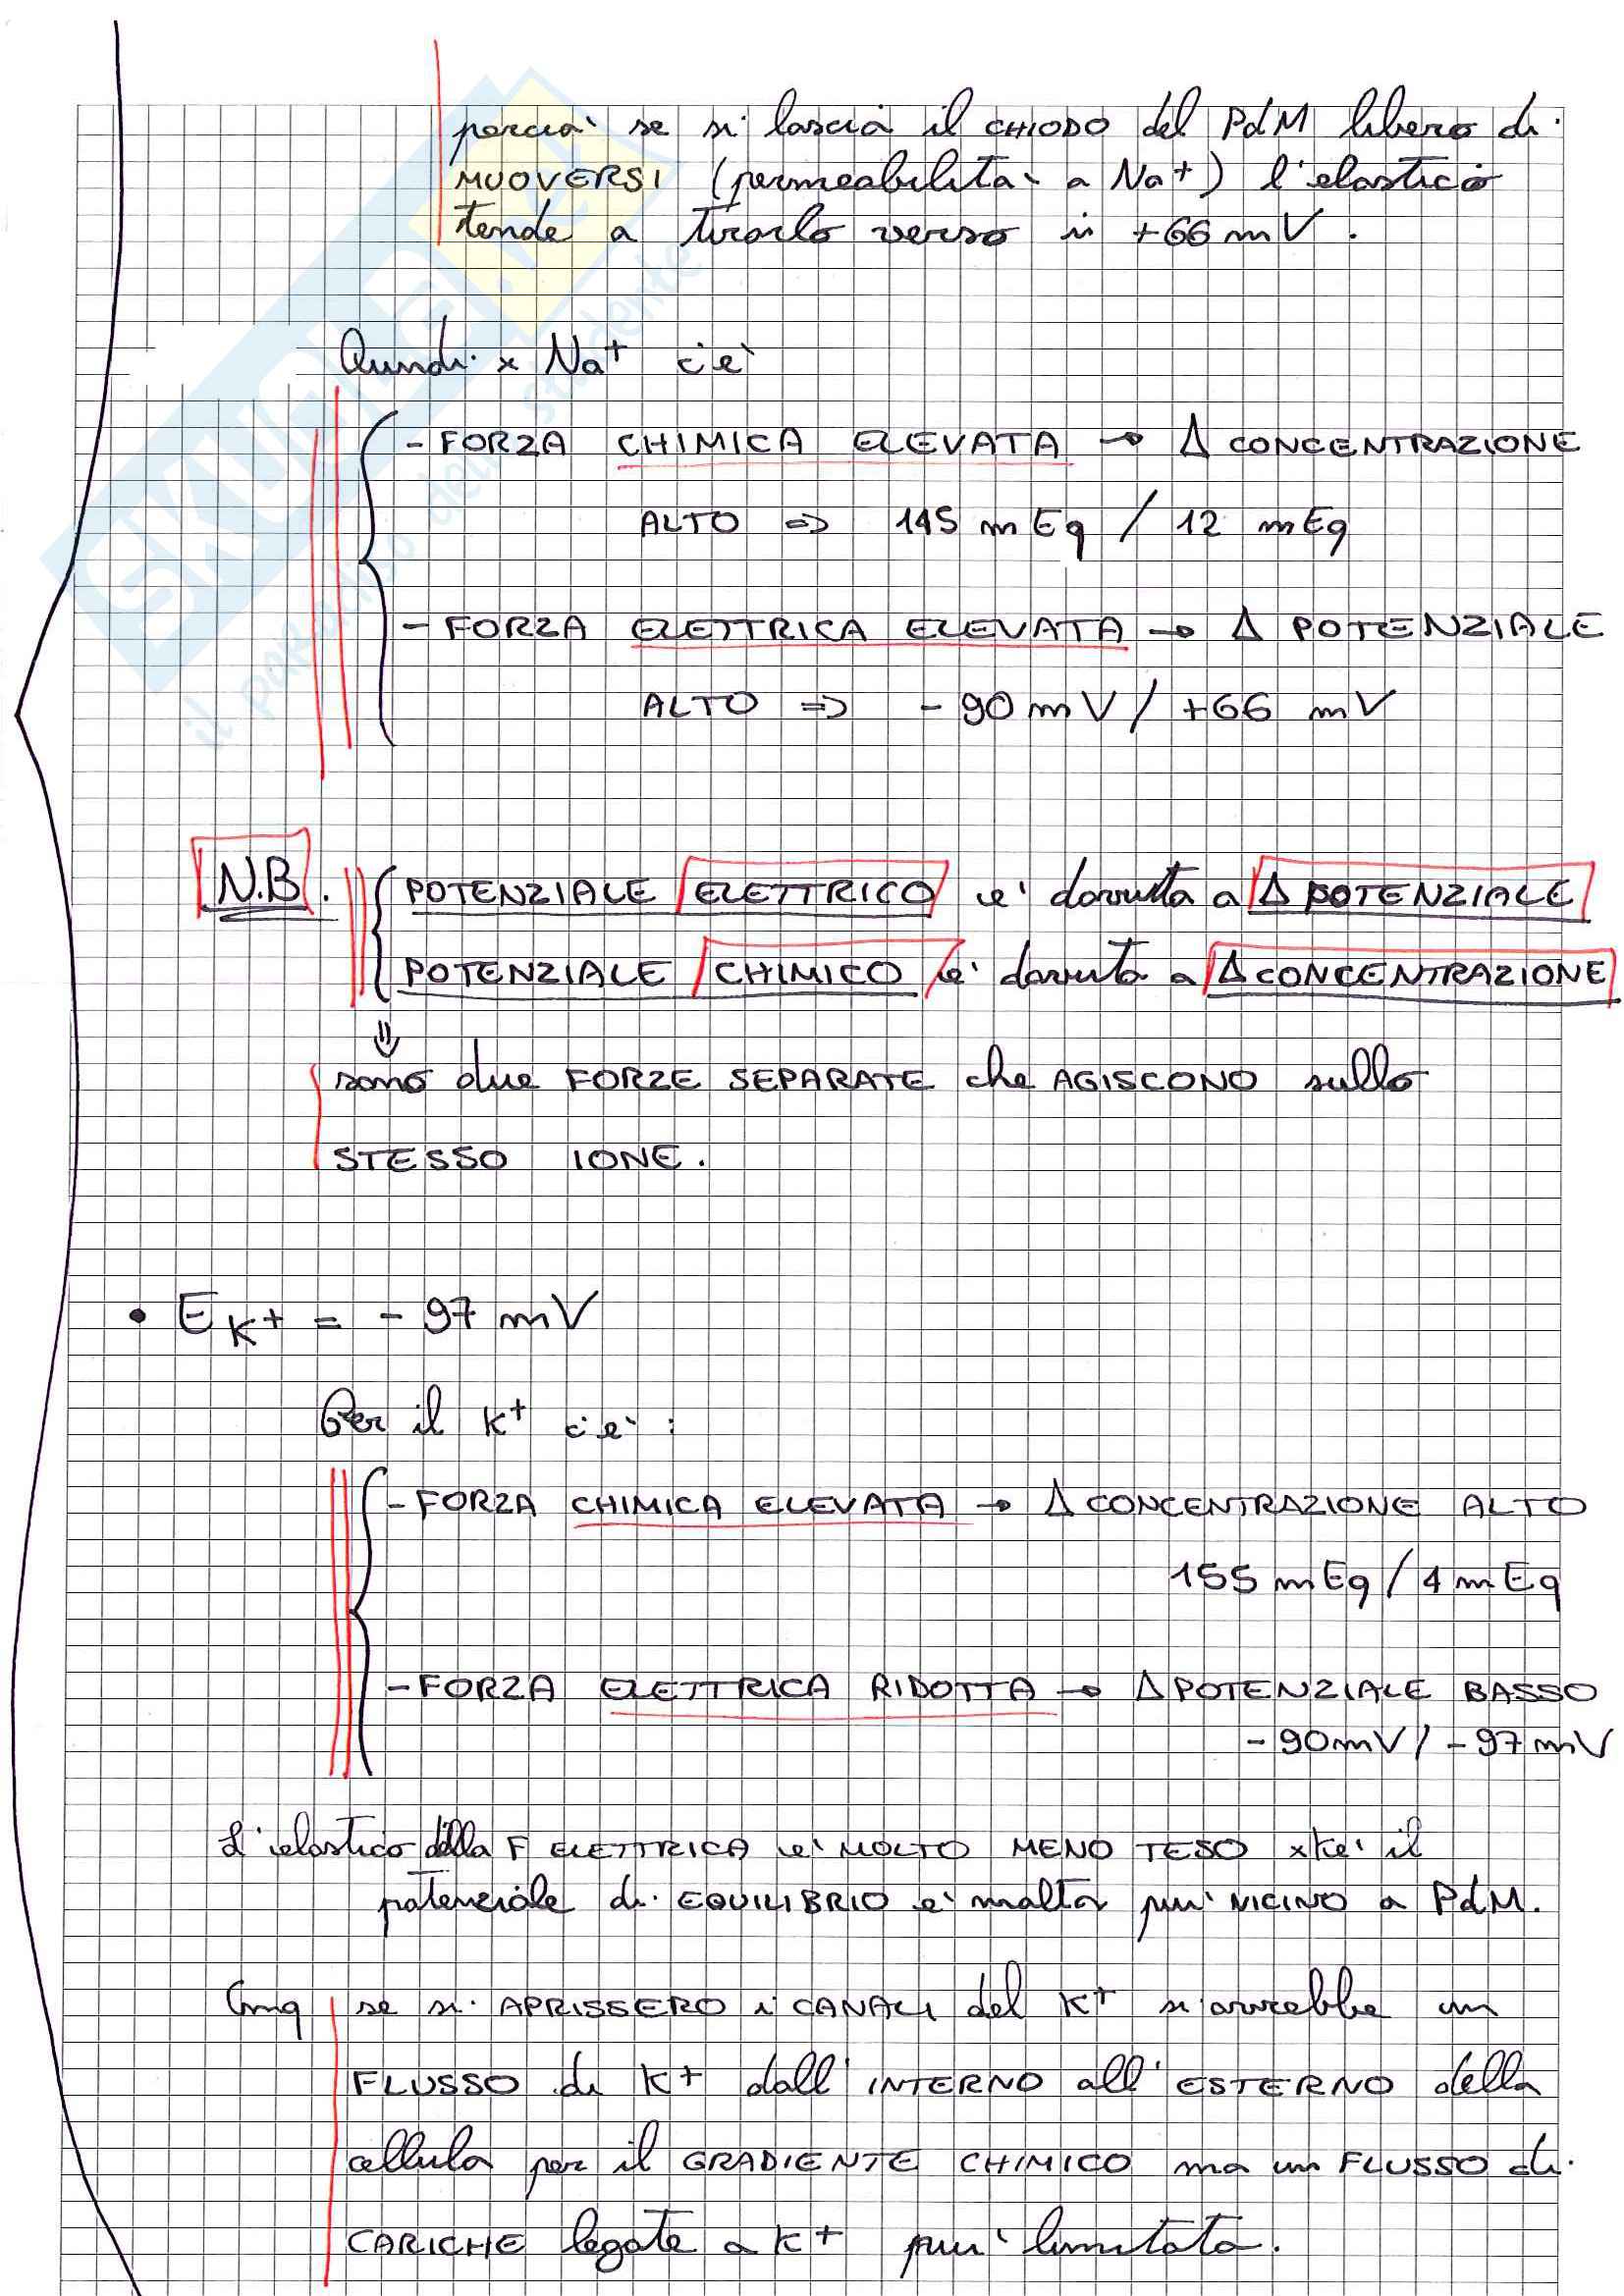 perciò se si lascia il CHIODO del PdM libero di
MUOVERSI (permeabilità a Na+) l'elastico
tende a tirarlo verso i +66 mV.
Quindi x Na+ c'è
- FORZA CHIMICA ELEVATA → Δ CONCENTRAZIONE
ALTO ⇒ 145 mEq / 12 mEq
- FORZA ELETTRICA ELEVATA → Δ POTENZIALE
ALTO ⇒ - 90 mV / +66 mV
N.B. POTENZIALE ELETTRICO è dovuto a Δ POTENZIALE
POTENZIALE CHIMICO è dovuto a Δ CONCENTRAZIONE
⇓
sono due FORZE SEPARATE che AGISCONO sullo
STESSO IONE.
• E K+ = - 97 mV
Per il K+ c'è :
- FORZA CHIMICA ELEVATA → Δ CONCENTRAZIONE ALTO
155 mEq / 4 mEq
- FORZA ELETTRICA RIDOTTA → Δ POTENZIALE BASSO
- 90 mV / - 97 mV
L'elastico della F ELETTRICA è MOLTO MENO TESO xkè il
potenziale di EQUILIBRIO è molto più VICINO a PdM.
Cmq se si APRISSERO i CANALI del K+ si avrebbe un
FLUSSO di K+ dall'INTERNO all'ESTERNO della
cellula per il GRADIENTE CHIMICO ma un FLUSSO di
CARICHE legate a K+ più limitato.
SKUOLA.net
il paradiso dello studente